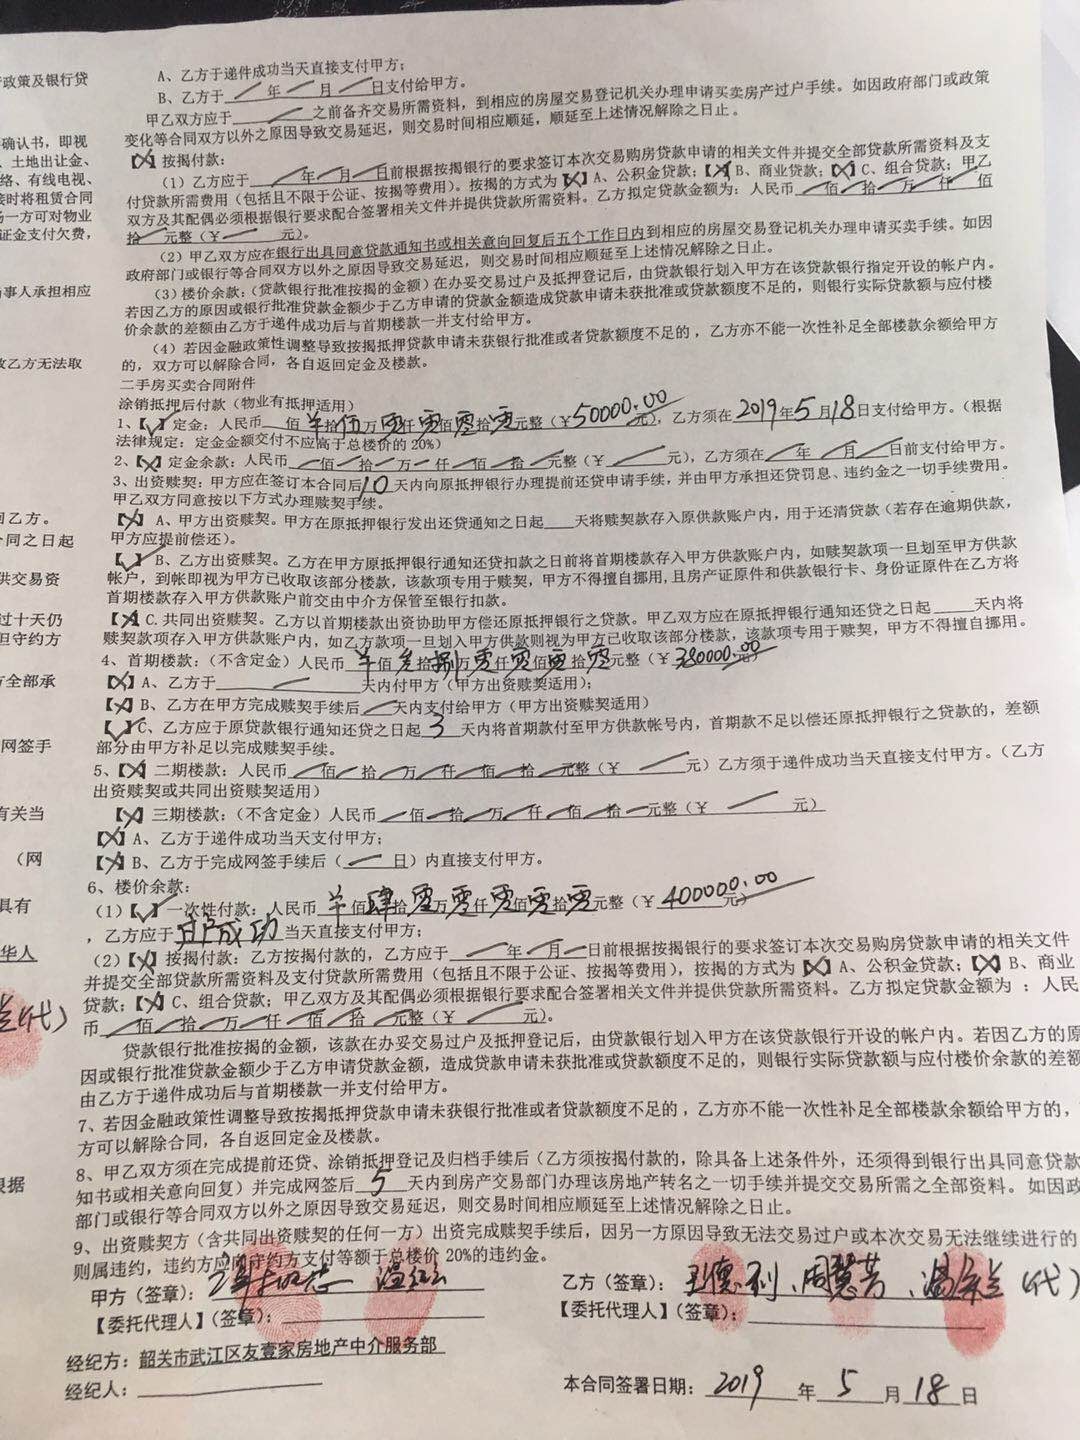 A、乙方于递件成功当天直接支付甲方；
行政策及银行贷
B、乙方于 年 月 日支付给甲方。
甲乙双方应于 之前备齐交易所需资料，到相应的房屋交易登记机关办理申请买卖房产过户手续。如因政府部门或政策
变化等合同双方以外之原因导致交易延迟，则交易时间相应顺延，顺延至上述情况解除之日止。
确认书，即视
【×】按揭付款：
、土地出让金、
（1）乙方应于 年 月 日前根据按揭银行的要求签订本次交易购房贷款申请的相关文件并提交全部贷款所需资料及支
络、有线电视、
付贷款所需费用（包括且不限于公证、按揭等费用）。按揭的方式为【×】A、公积金贷款；【×】B、商业贷款；【×】C、组合贷款；甲乙
接时将租赁合同
双方及其配偶必须根据银行要求配合签署相关文件并提供贷款所需资料。乙方拟定贷款金额为：人民币 佰 拾 万 仟 佰
另一方可对物业
拾 元整（￥ 元）。
证金支付欠费，
（2）甲乙双方应在银行出具同意贷款通知书或相关意向回复后五个工作日内到相应的房屋交易登记机关办理申请买卖手续。如因
政府部门或银行等合同双方以外之原因导致交易延迟，则交易时间相应顺延至上述情况解除之日止。
当事人承担相应
（3）楼价余款：（贷款银行批准按揭的金额）在办妥交易过户及抵押登记后，由贷款银行划入甲方在该贷款银行指定开设的帐户内。
若因乙方的原因或银行批准贷款金额少于乙方申请的贷款金额造成贷款申请未获批准或贷款额度不足的，则银行实际贷款额与应付楼
价余款的差额由乙方于递件成功后与首期楼款一并支付给甲方。
（4）若因金融政策性调整导致按揭抵押贷款申请未获银行批准或者贷款额度不足的，乙方亦不能一次性补足全部楼款余额给甲方
致乙方无法取
的，双方可以解除合同，各自返回定金及楼款。
二手房买卖合同附件
涂销抵押后付款（物业有抵押适用）
1、【√】定金：人民币 佰 拾伍万零仟零佰零拾零元整（￥50000.00元），乙方须在2019年5月18日支付给甲方。（根据
法律规定：定金金额交付不应高于总楼价的20%）
2、【×】定金余款：人民币 佰 拾 万 仟 佰 拾 元整（￥ 元），乙方须在 年 月 日前支付给甲方。
3、出资赎契：甲方应在签订本合同后10天内向原抵押银行办理提前还贷申请手续，并由甲方承担还贷罚息、违约金之一切手续费用。
甲乙双方同意按以下方式办理赎契手续。
回乙方。
【×】A、甲方出资赎契。甲方在原抵押银行发出还贷通知之日起 天将赎契款存入原供款账户内，用于还清贷款（若存在逾期供款，
合同之日起
甲方应提前偿还）。
【√】B、乙方出资赎契。乙方在甲方原抵押银行通知还贷扣款之日前将首期楼款存入甲方供款账户内，如赎契款项一旦划至甲方供款
供交易资
帐户，到帐即视为甲方已收取该部分楼款，该款项专用于赎契，甲方不得擅自挪用，且房产证原件和供款银行卡、身份证原件在乙方将
首期楼款存入甲方供款账户前交由中介方保管至银行扣款。
过十天仍
【×】C.共同出资赎契。乙方以首期楼款出资协助甲方偿还原抵押银行之贷款。甲乙双方应在原抵押银行通知还贷之日起 天内将
但守约方
赎契款项存入甲方供款账户内，如乙方款项一旦划入甲方供款则视为甲方已收取该部分楼款，该款项专用于赎契，甲方不得擅自挪用。
4、首期楼款：（不含定金）人民币 佰叁拾捌万零仟零佰零拾零元整（￥380000.00元）
方全部承
【×】A、乙方于 天内付甲方（甲方出资赎契适用）；
【×】B、乙方在甲方完成赎契手续后 天内支付给甲方（甲方出资赎契适用）
【√】C、乙方应于原贷款银行通知还贷之日起3天内将首期款付至甲方供款帐号内，首期款不足以偿还原抵押银行之贷款的，差额
网签手
部分由甲方补足以完成赎契手续。
5、【×】二期楼款：人民币 佰 拾 万 仟 佰 拾 元整（￥ 元）乙方须于递件成功当天直接支付甲方。（乙方
出资赎契或共同出资赎契适用）
有关当
【×】三期楼款：（不含定金）人民币 佰 拾 万 仟 佰 拾 元整（￥ 元）
【×】A、乙方于递件成功当天支付甲方；
（网
【×】B、乙方于完成网签手续后（ 日）内直接支付甲方。
6、楼价余款：
具有
（1）【√】一次性付款：人民币 佰肆拾零万零仟零佰零拾零元整（￥400000.00元）
，乙方应于过户成功当天直接支付甲方；
华人
（2）【×】按揭付款：乙方按揭付款的，乙方应于 年 月 日前根据按揭银行的要求签订本次交易购房贷款申请的相关文件
并提交全部贷款所需资料及支付贷款所需费用（包括且不限于公证、按揭等费用），按揭的方式为【×】A、公积金贷款；【×】B、商业
贷款；【×】C、组合贷款；甲乙双方及其配偶必须根据银行要求配合签署相关文件并提供贷款所需资料。乙方拟定贷款金额为：人民
兰(代)
币 佰 拾 万 仟 佰 拾 元整（￥ 元）。
贷款银行批准按揭的金额，该款在办妥交易过户及抵押登记后，由贷款银行划入甲方在该贷款银行开设的帐户内。若因乙方的原
因或银行批准贷款金额少于乙方申请贷款金额，造成贷款申请未获批准或贷款额度不足的，则银行实际贷款额与应付楼价余款的差额
由乙方于递件成功后与首期楼款一并支付给甲方。
7、若因金融政策性调整导致按揭抵押贷款申请未获银行批准或者贷款额度不足的，乙方亦不能一次性补足全部楼款余额给甲方的，
方可以解除合同，各自返回定金及楼款。
8、甲乙双方须在完成提前还贷、涂销抵押登记及归档手续后（乙方须按揭付款的，除具备上述条件外，还须得到银行出具同意贷款
根据
知书或相关意向回复）并完成网签后5天内到房产交易部门办理该房地产转名之一切手续并提交交易所需之全部资料。如因政
部门或银行等合同双方以外之原因导致交易延迟，则交易时间相应顺延至上述情况解除之日止。
9、出资赎契方（含共同出资赎契的任何一方）出资完成赎契手续后，因另一方原因导致无法交易过户或本次交易无法继续进行的
则属违约，违约方应向守约方支付等额于总楼价20%的违约金。
甲方（签章）： 温红云
乙方（签章）：王德利、周慧芳、 (代)
【委托代理人】（签章）：
【委托代理人】（签章）：
经纪方：韶关市武江区友壹家房地产中介服务部
经纪人：
本合同签署日期：2019年5月18日